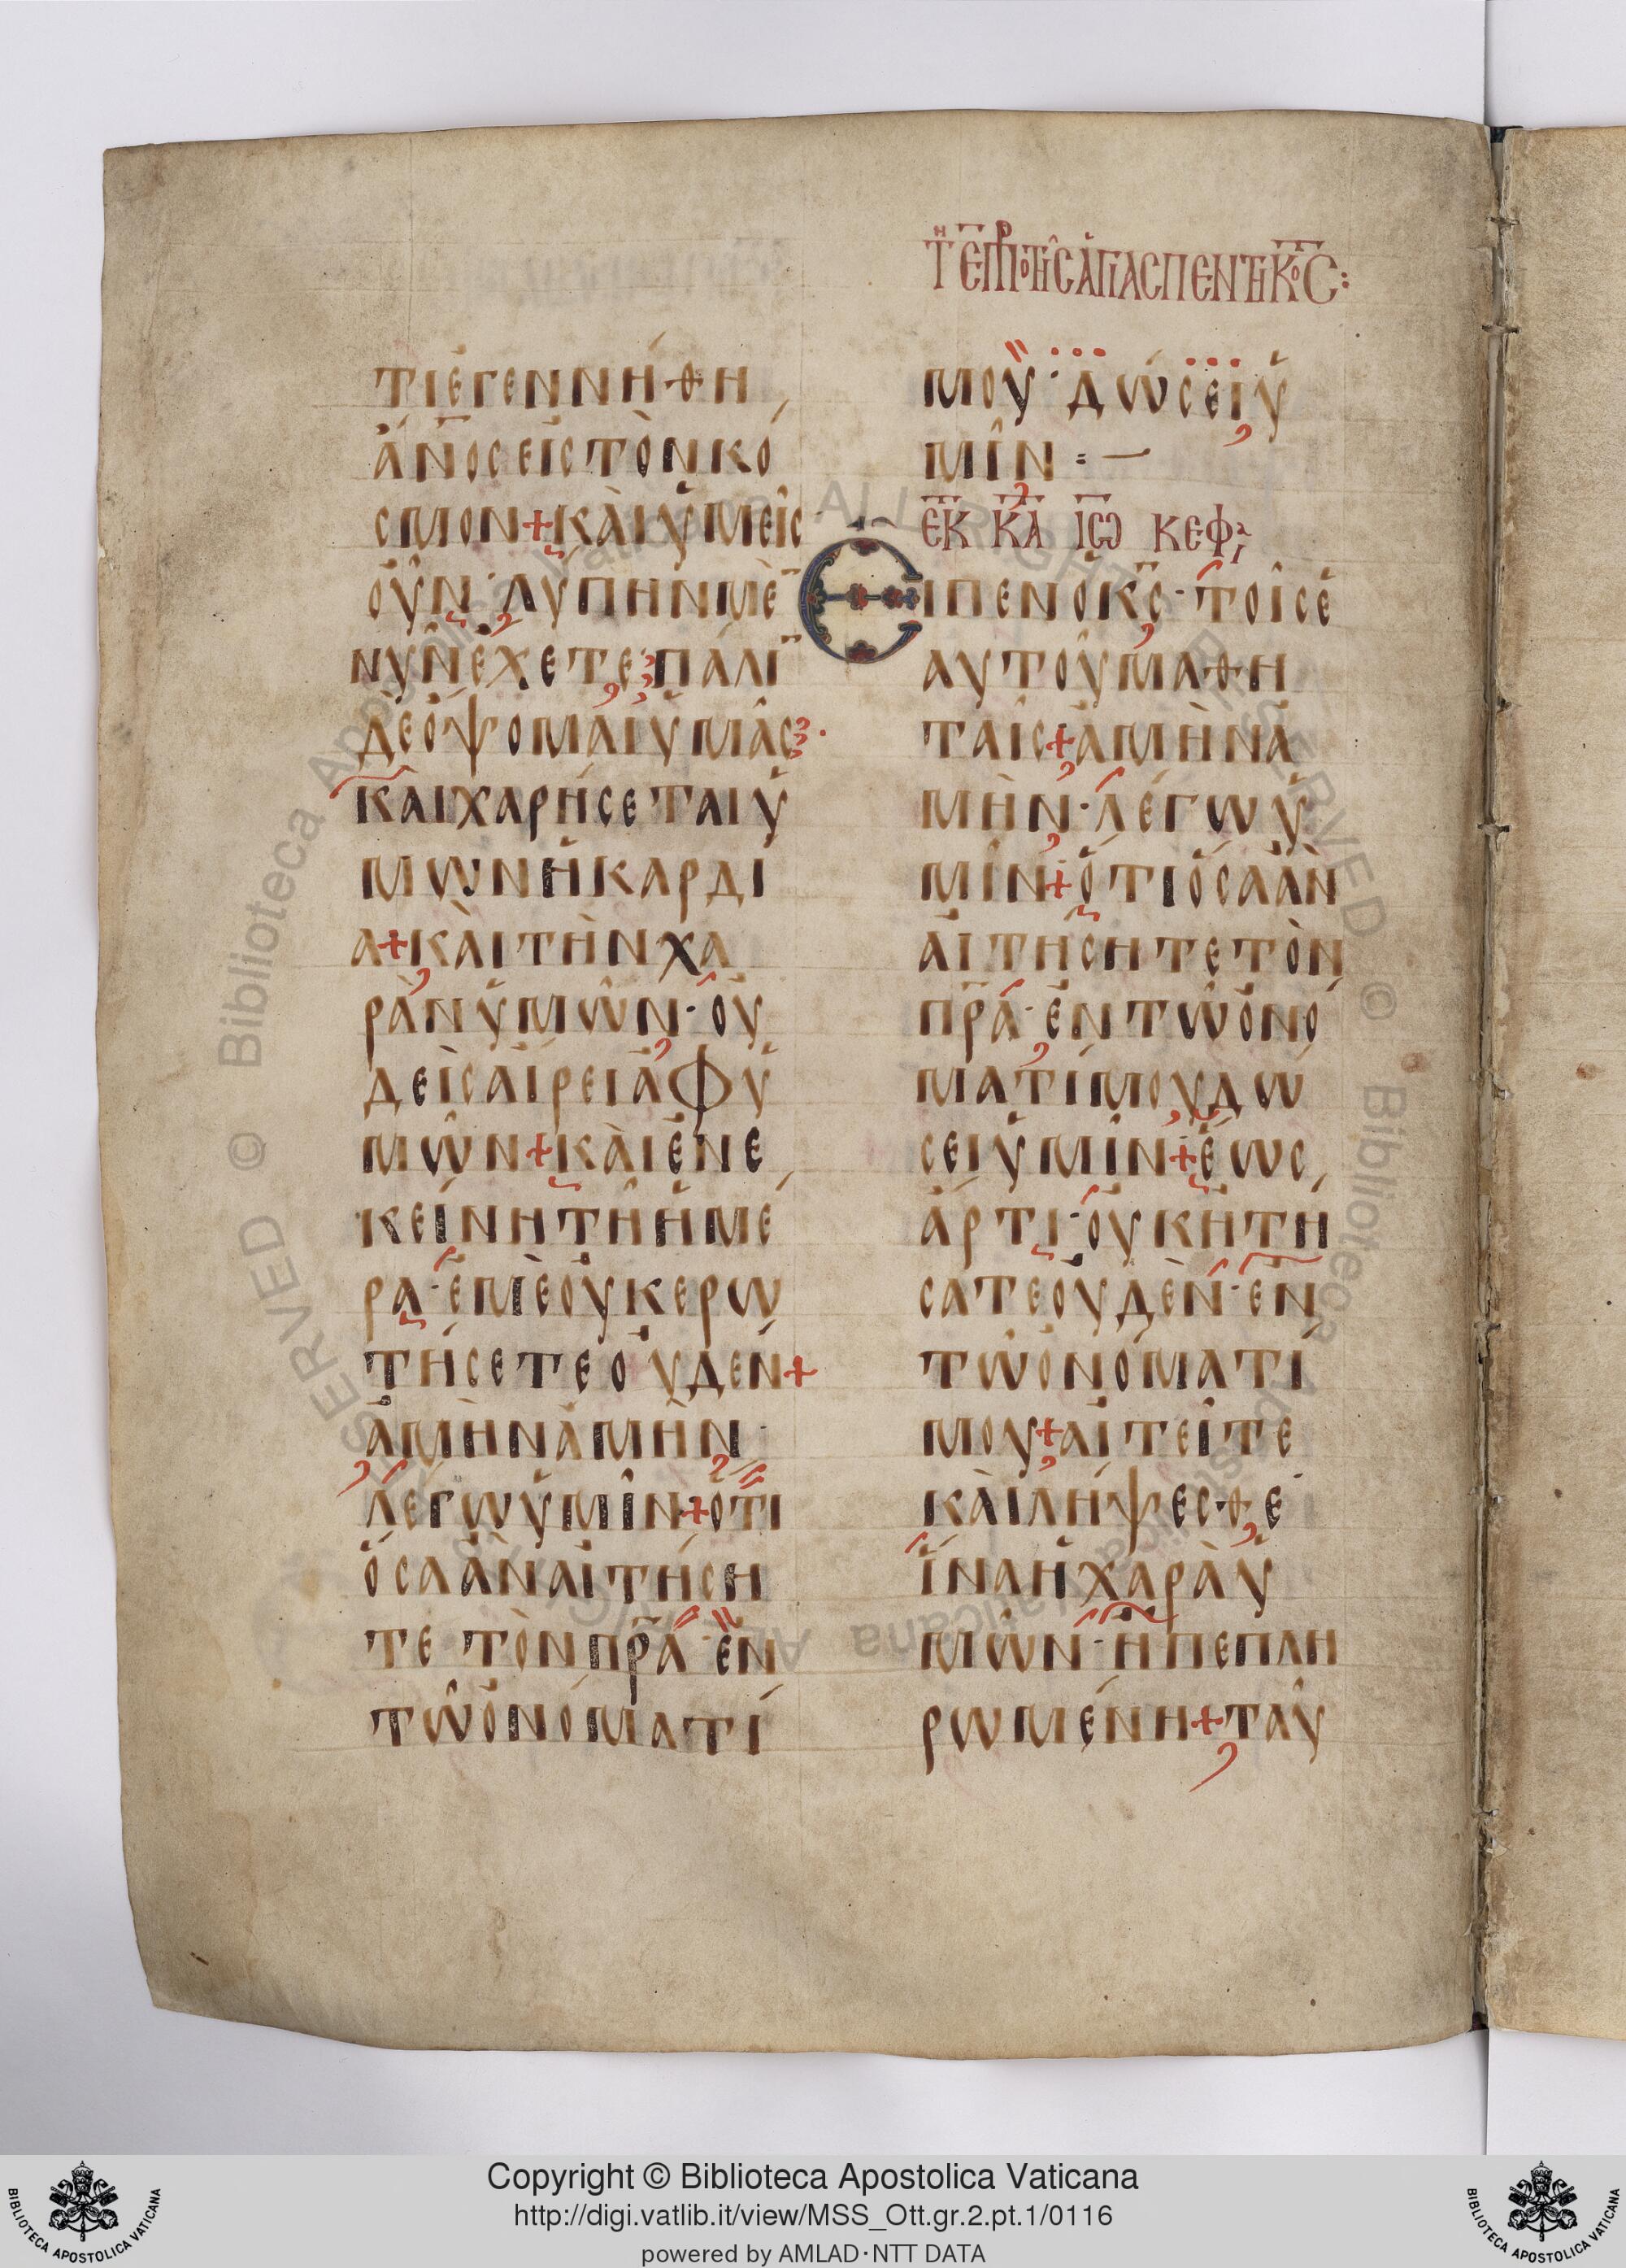 Τῌ ΕΠΡΟΤΗΣ ΑΓΙΑΣ ΠΕΝΤΗΚΟΣ:
ΤΙ ΕΓΕΝΝΗΘΗ
ἈΝ̅ΟϹ ΕΙϹ ΤῸΝ ΚΌ
ϹΜΟΝ+ΚΑῚ ὙΜΕΙ͂Ϲ
ΟΥ͂Ν· ΛΎΠΗΝ ΜῈ
ΝΥ͂Ν ἜΧΕΤΕ· ΠΆΛΙ̅
ΔῈ ὌΨΟΜΑΙ ὙΜΑ͂Ϲ·
ΚΑῚ ΧΑΡΉϹΕΤΑΙ Ὑ
ΜΩ͂Ν Ἡ ΚΑΡΔΊ
Α+ΚΑῚ ΤῊΝ ΧΑ
ΡᾺΝ ὙΜΩ͂Ν· ΟΥ̓
ΔΕῚϹ ΑἼΡΕΙ ἈΦ Ὑ
ΜΩ͂Ν+ΚΑῚ ἘΝ Ε
ΚΕΊΝΗ ΤΗ͂ ἩΜΈ
ΡΑ· ἘΜῈ ΟΥ̓Κ ΕΡΩ
ΤΉϹΕΤΕ ΟΥ̓ΔΈΝ+
ἈΜῊΝ ἈΜῊΝ·
ΛΈΓΩ ὙΜΙ͂Ν+ὍΤΙ
ὍϹΑ ἊΝ ΑἸΤΉϹΗ
ΤΕ ΤῸΝ ΠΡ̅Α· ἘΝ
ΤΩ͂ ὈΝΌΜΑΤΊ
ΜΟΥ· ΔΏϹΕΙ Ὑ
ΜΙ͂Ν :—
ΕΚ ΚΑ ΙΩ ΚΕΦ
ΕἾΠΕΝ Ὁ Κ̅Ϲ· ΤΟΙ͂Ϲ Ἑ
ΑΥΤΟΥ͂ ΜΑΘΗ
ΤΑΙ͂Ϲ+ἈΜῊΝ Ἀ
ΜῊΝ· ΛΈΓΩ Ὑ
ΜΙ͂Ν+ὍΤΙ ὍϹΑ ἊΝ
ΑἸΤΉϹΗΤΕ ΤῸΝ
ΠΡ̅Α· ἘΝ ΤΩ͂ ὈΝΌ
ΜΑΤΊ ΜΟΥ ΔΏ
ϹΕΙ ὙΜΙ͂Ν+ἝΩϹ
ἌΡΤΙ· ΟΥ̓Κ ΗΤΉ
ϹΑΤΕ ΟΥ̓ΔῈΝ· ἘΝ
ΤΩ͂ ὈΝΌΜΑΤΊ
ΜΟΥ+ΑἸΤΕΙ͂ΤΕ
ΚΑῚ ΛΉΨΕϹΘΕ
ἽΝΑ Ἡ ΧΑΡᾺ Ὑ
ΜΩ͂Ν· Ἦ ΠΕΠΛΗ
ΡΩΜΈΝΗ+ΤΑΥ͂
Copyright © Biblioteca Apostolica Vaticana
http://digi.vatlib.it/view/MSS_Ott.gr.2.pt.1/0116
powered by AMLAD·NTT DATA
BIBLIOTECA APOSTOLICA VATICANA
BIBLIOTECA APOSTOLICA VATICANA